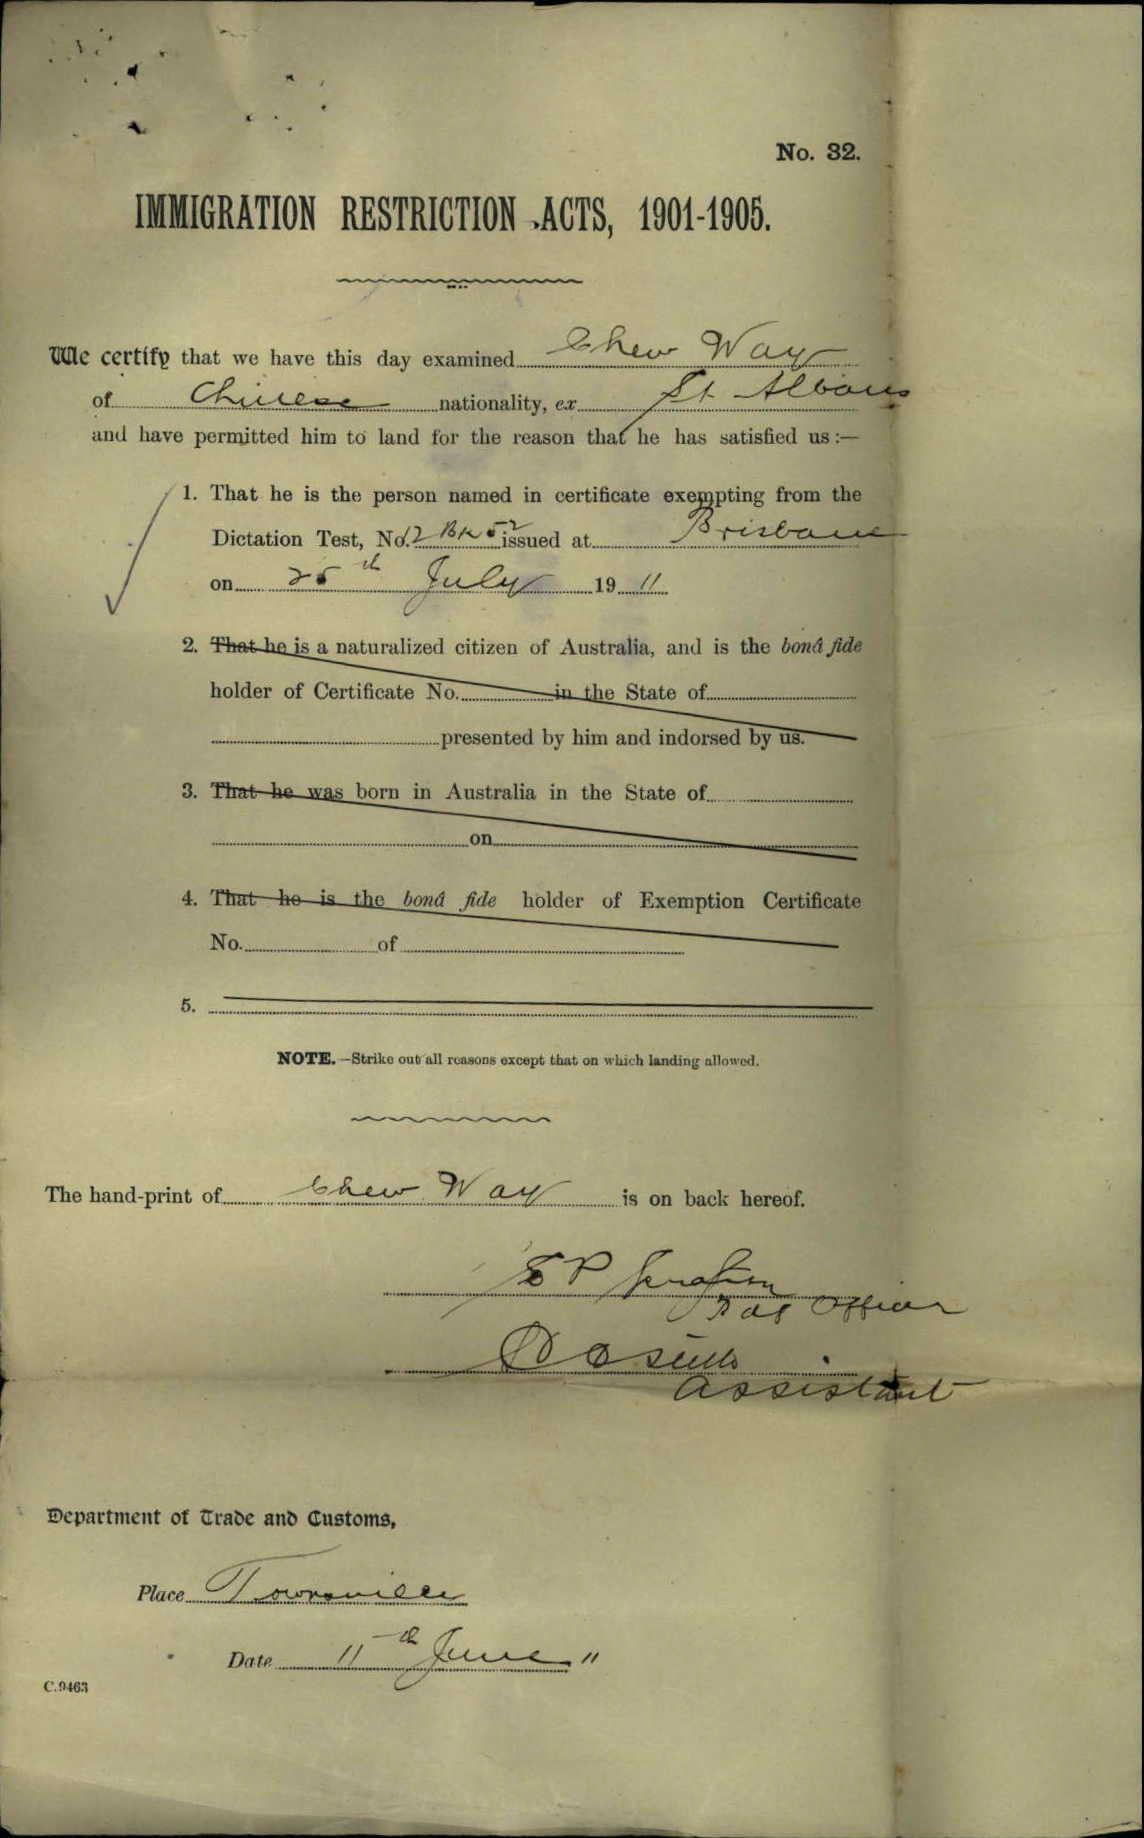 No. 32.
IMMIGRATION RESTRICTION ACTS, 1901-1905.
We certify that we have this day examined Chew Way
of Chinese nationality, ex St Albans
and have permitted him to land for the reason that he has satisfied us :—
1. That he is the person named in certificate exempting from the
Dictation Test, No. 12 Bk 52 issued at Brisbane
on 25th July 19 11
2. That he is a naturalized citizen of Australia, and is the bonâ fide
holder of Certificate No. in the State of
presented by him and indorsed by us.
3. That he was born in Australia in the State of
on
4. That he is the bonâ fide holder of Exemption Certificate
No. of
5.
NOTE.—Strike out all reasons except that on which landing allowed.
The hand-print of Chew Way is on back hereof.
E P
Officer
Assistant
Department of Trade and Customs,
Place Townsville
Date 11th June 11
C.9463